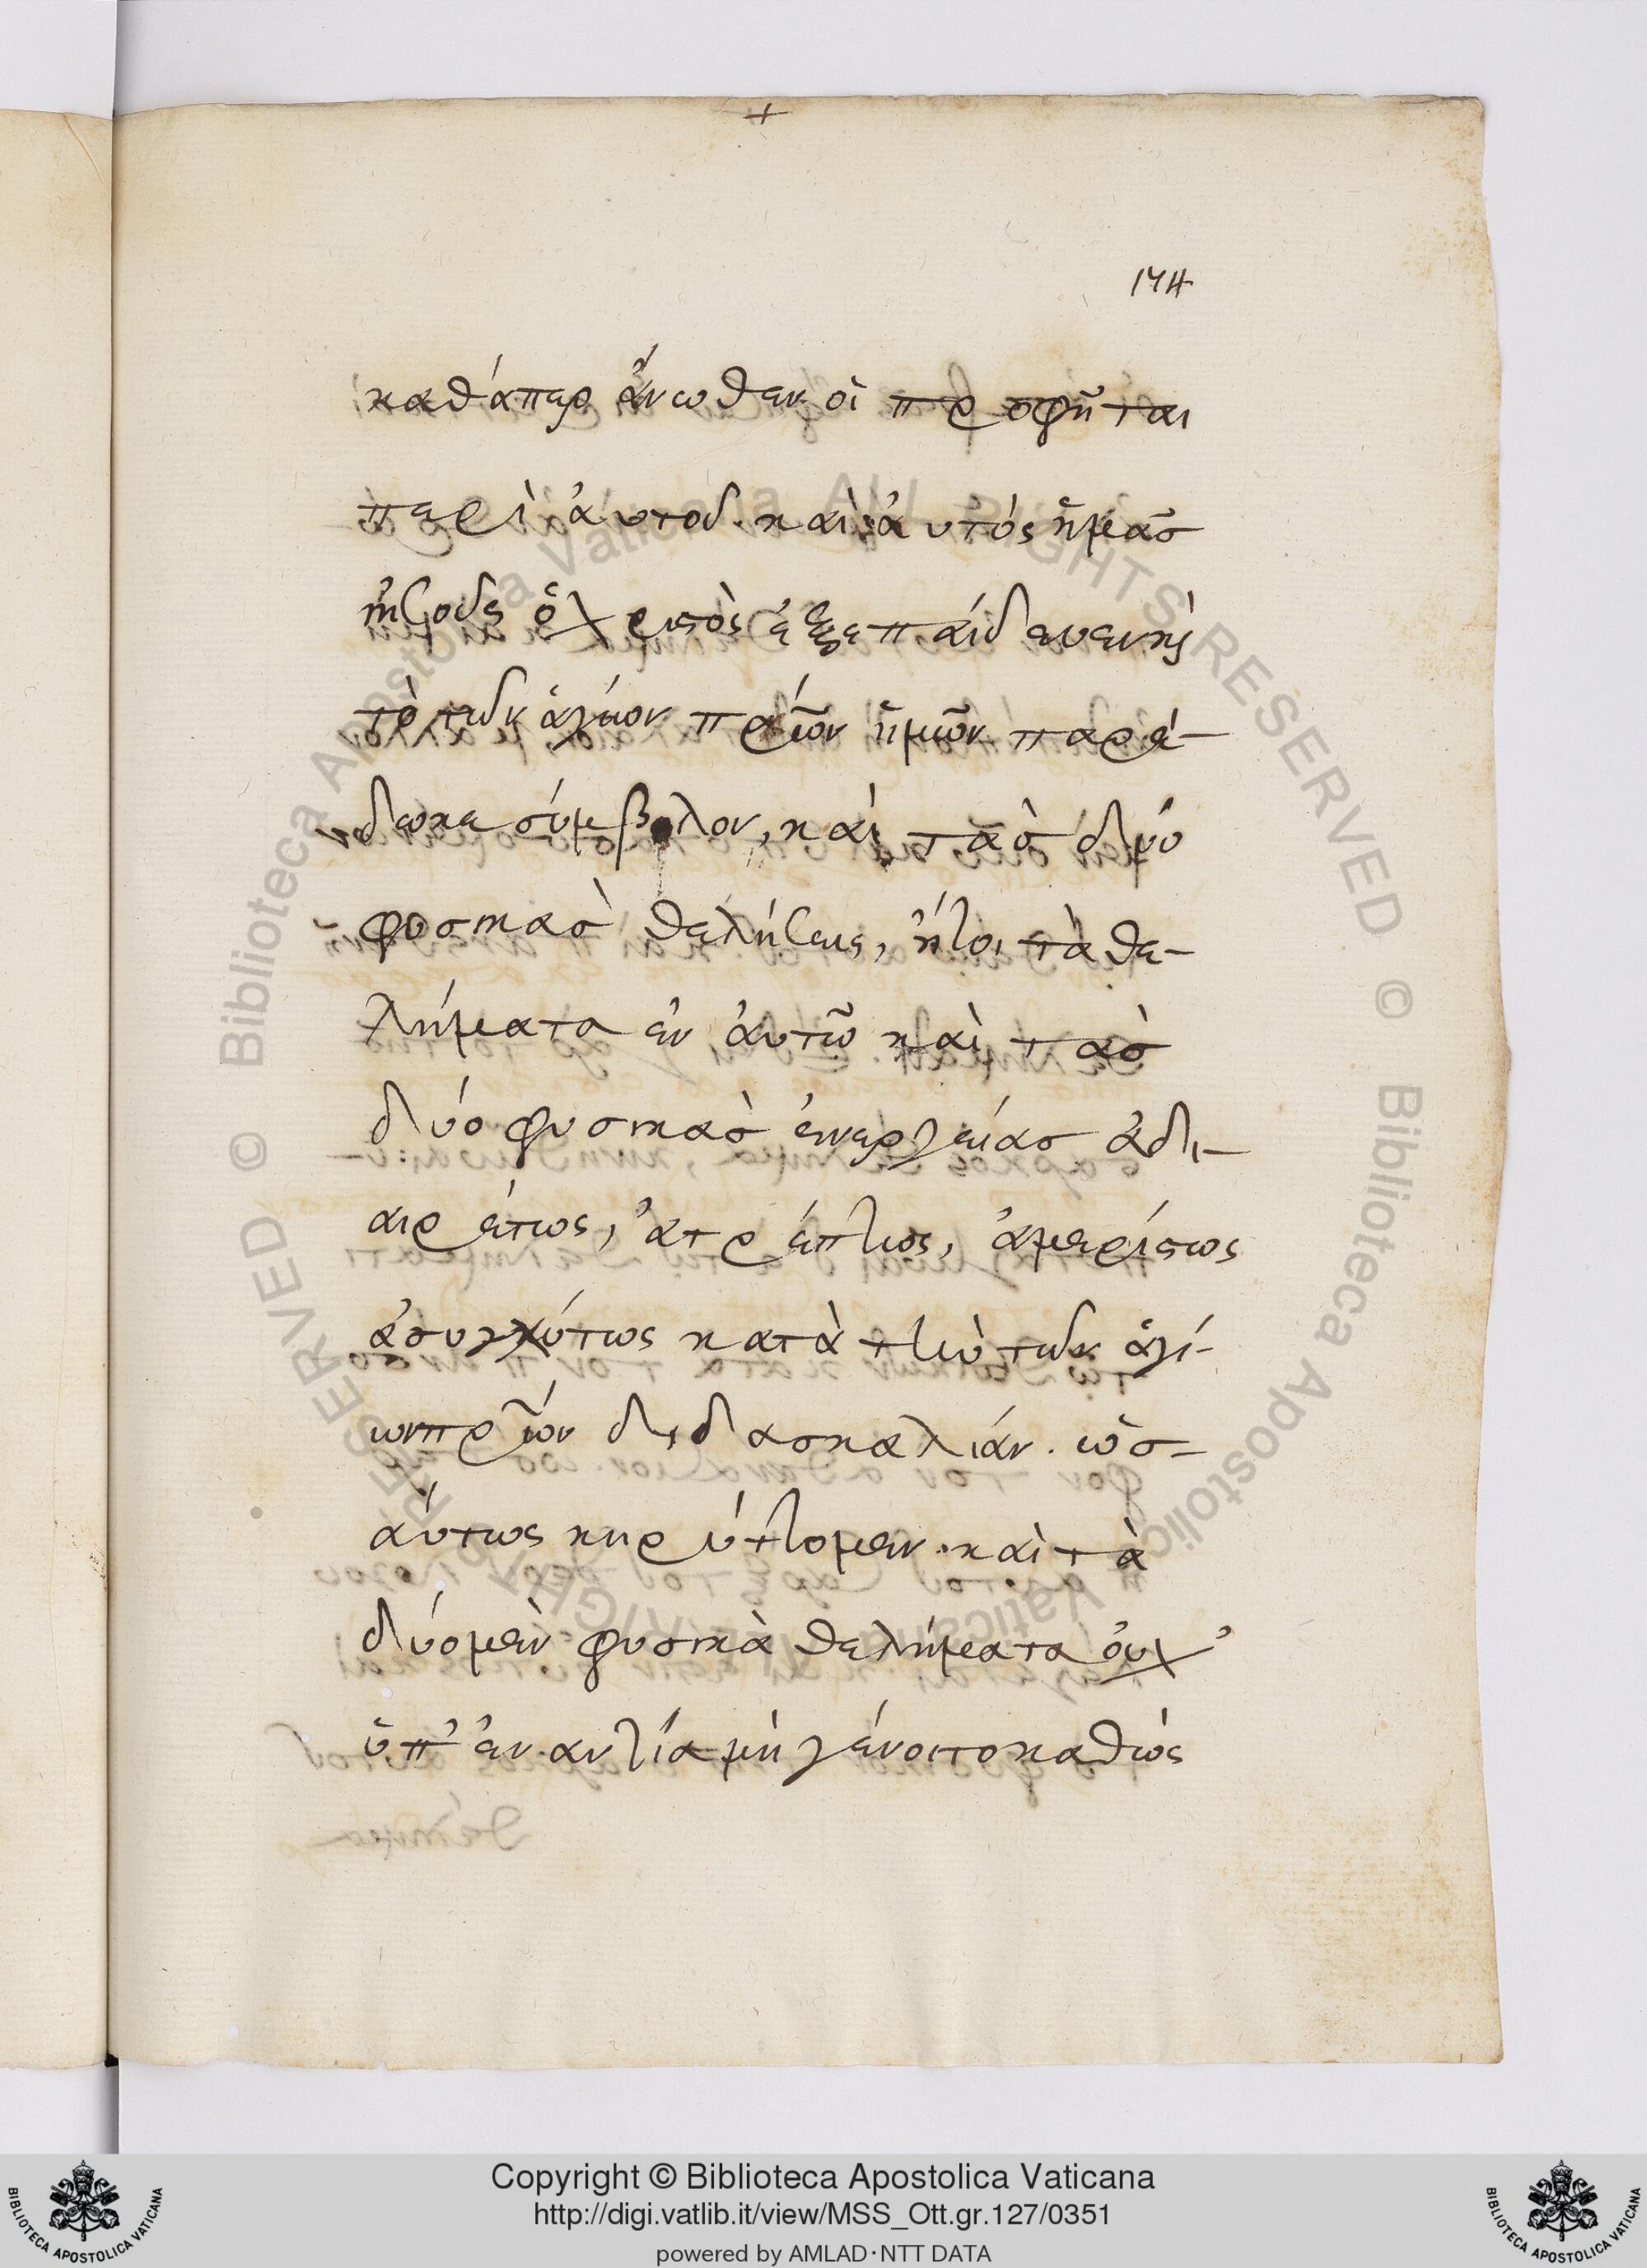 174
καθάπερ ἄνωθεν οἱ προφῆται
περὶ ἀυτοῦ. καὶ ἀυτός ἡμᾶσ
ἰησοῦς ὁ χριστὸς ἐξεπάιδευεν κὶ
τὸ τῶν ἁγίων πρῶν ἡμῶν παρέ-
δωκε σύμβολον, κάι τὰσ δύο
φυσικὰσ θελήσεις, ἤτοι τὰ θε-
λήματα ἐν ἀυτῶ καὶ τὰσ
δύο φυσικὰσ ἐνεργείασ ἀδι-
αιρέτως, ἀτρέπτως, ἀμερίστως
ἀσυγχύτως κατὰ τὴν τῶν ἁγί-
ων πρῶν διδασκαλιάν. ὡσ-
άυτως κηρύττομεν. καὶ τὰ
δύο μὲν φυσικὰ θελήματα ὀυχ'
ὑπ' ἐναντία μὴ γένοιτο καθὼς
Copyright © Biblioteca Apostolica Vaticana
http://digi.vatlib.it/view/MSS_Ott.gr.127/0351
powered by AMLAD·NTT DATA
BIBLIOTECA APOSTOLICA VATICANA
BIBLIOTECA APOSTOLICA VATICANA
© Biblioteca Apostolica Vaticana ALL RIGHTS RESERVED © Biblioteca Apostolica Vaticana ALL RIGHTS RESERVED